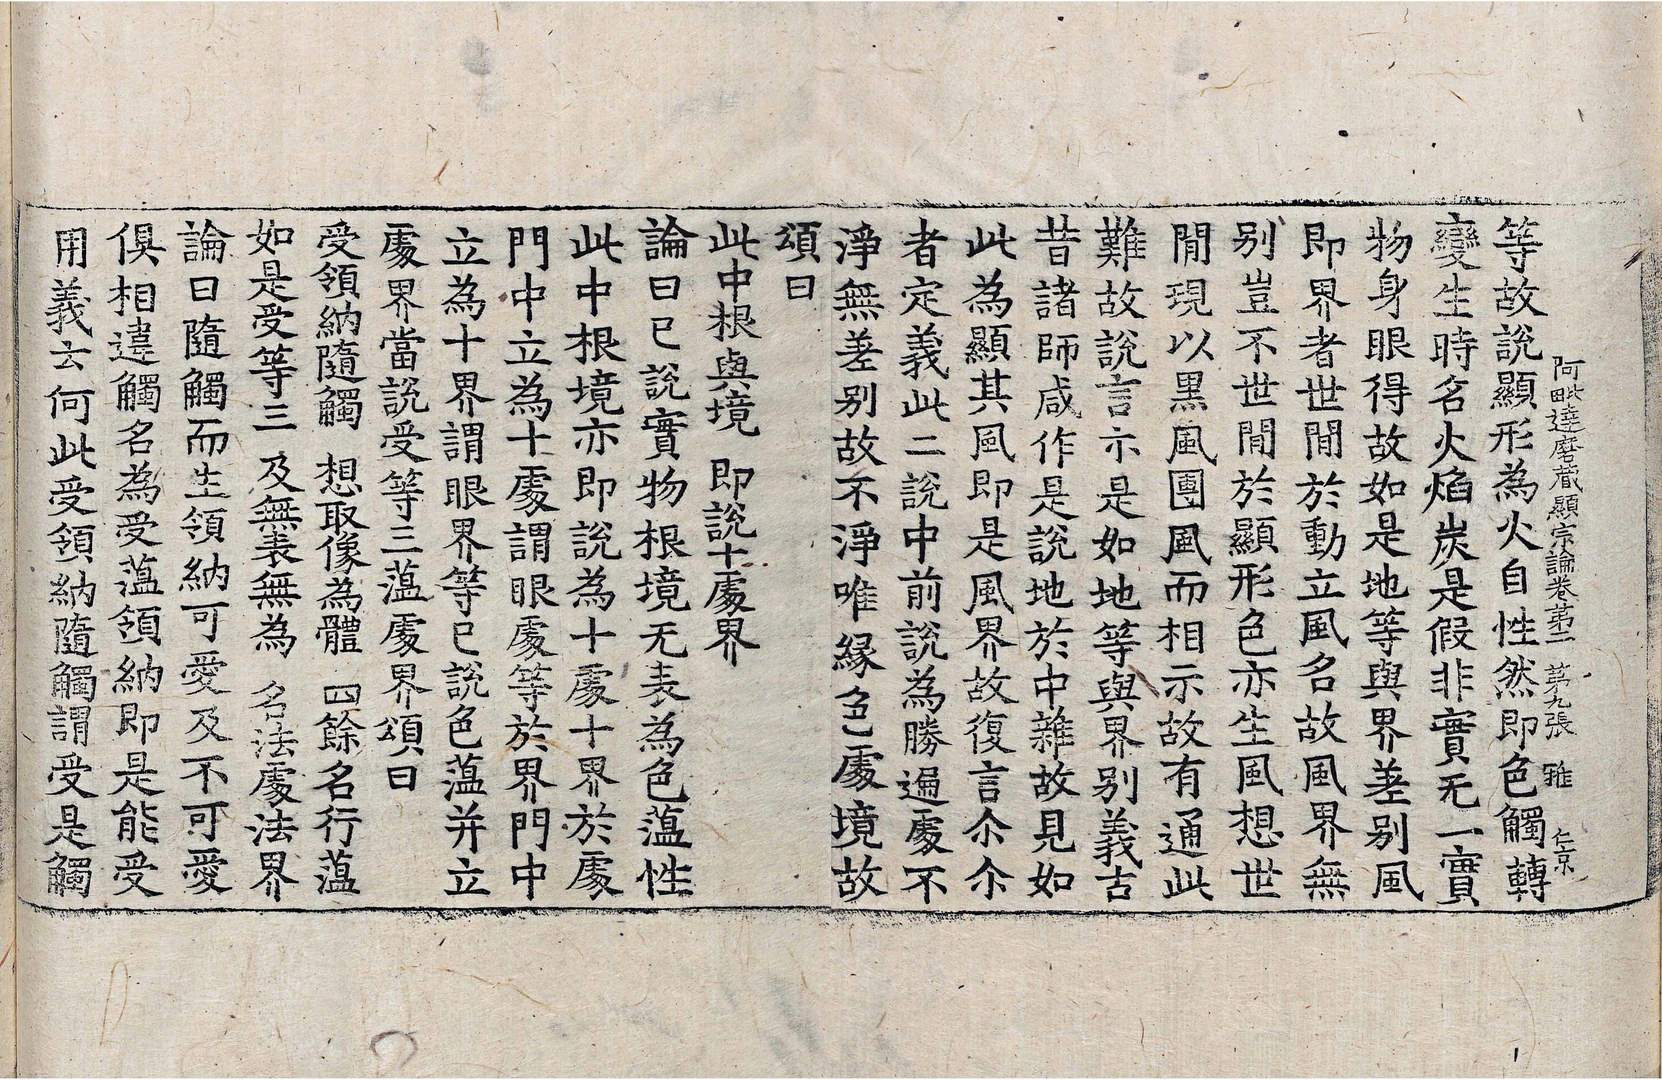 阿毗達磨藏顯宗論卷第二 第九張 雅 仁京
等故說顯形為火自性然即色觸轉
變生時名火焰炭是假非實无一實
物身眼得故如是地等與界差別風
即界者世間於動立風名故風界無
別豈不世間於顯形色亦生風想世
間現以黑風團風而相示故有通此
難故說言尒是如地等與界別義古
昔諸師咸作是說地於中雜故見如
此為顯其風即是風界故復言尒尒
者定義此二說中前說為勝遍處不
淨無差別故不淨唯緣色處境故
頌曰
此中根與境 即說十處界
論曰已說實物根境无表為色蘊性
此中根境亦即說為十處十界於處
門中立為十處謂眼處等於界門中
立為十界謂眼界等已說色蘊并立
處界當說受等三蘊處界頌曰
受領納隨觸 想取像為體 四餘名行蘊
如是受等三 及無表無為 名法處法界
論曰隨觸而生領納可愛及不可愛
俱相違觸名為受蘊領納即是能受
用義云何此受領納隨觸謂受是觸